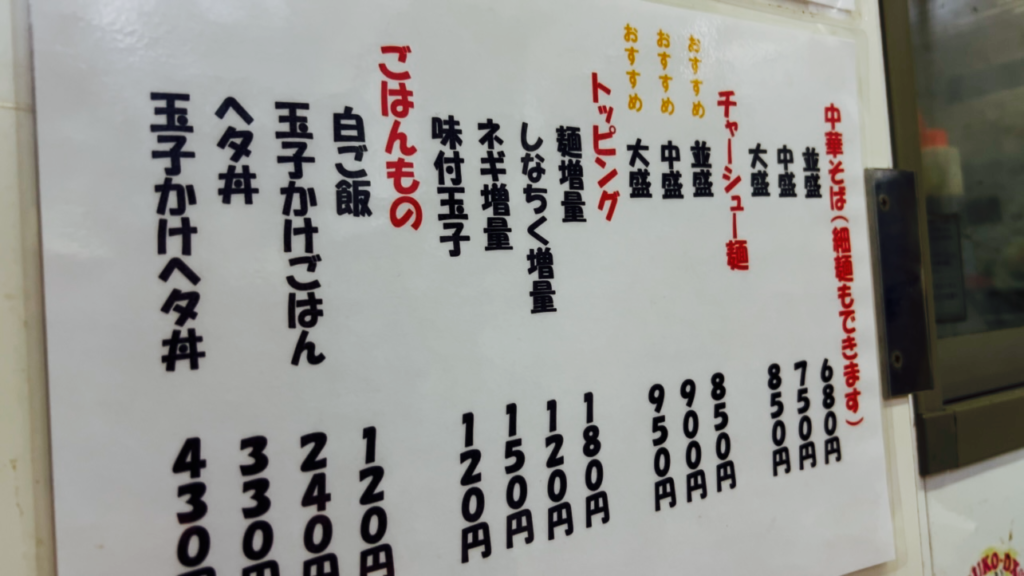 中華そば(細麺もできます)
並盛 680円
中盛 750円
大盛 850円
チャーシュー麺
おすすめ 並盛 850円
おすすめ 中盛 900円
おすすめ 大盛 950円
トッピング
麺増量 180円
しなちく増量 120円
ネギ増量 150円
味付玉子 120円
ごはんもの
白ご飯 120円
玉子かけごはん 240円
ヘタ丼 330円
玉子かけヘタ丼 430円